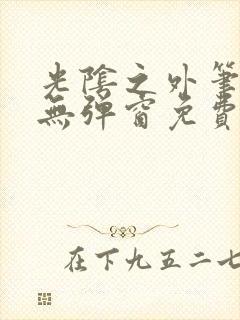 光陰之外筆
無彈窗免費
在下九五二七